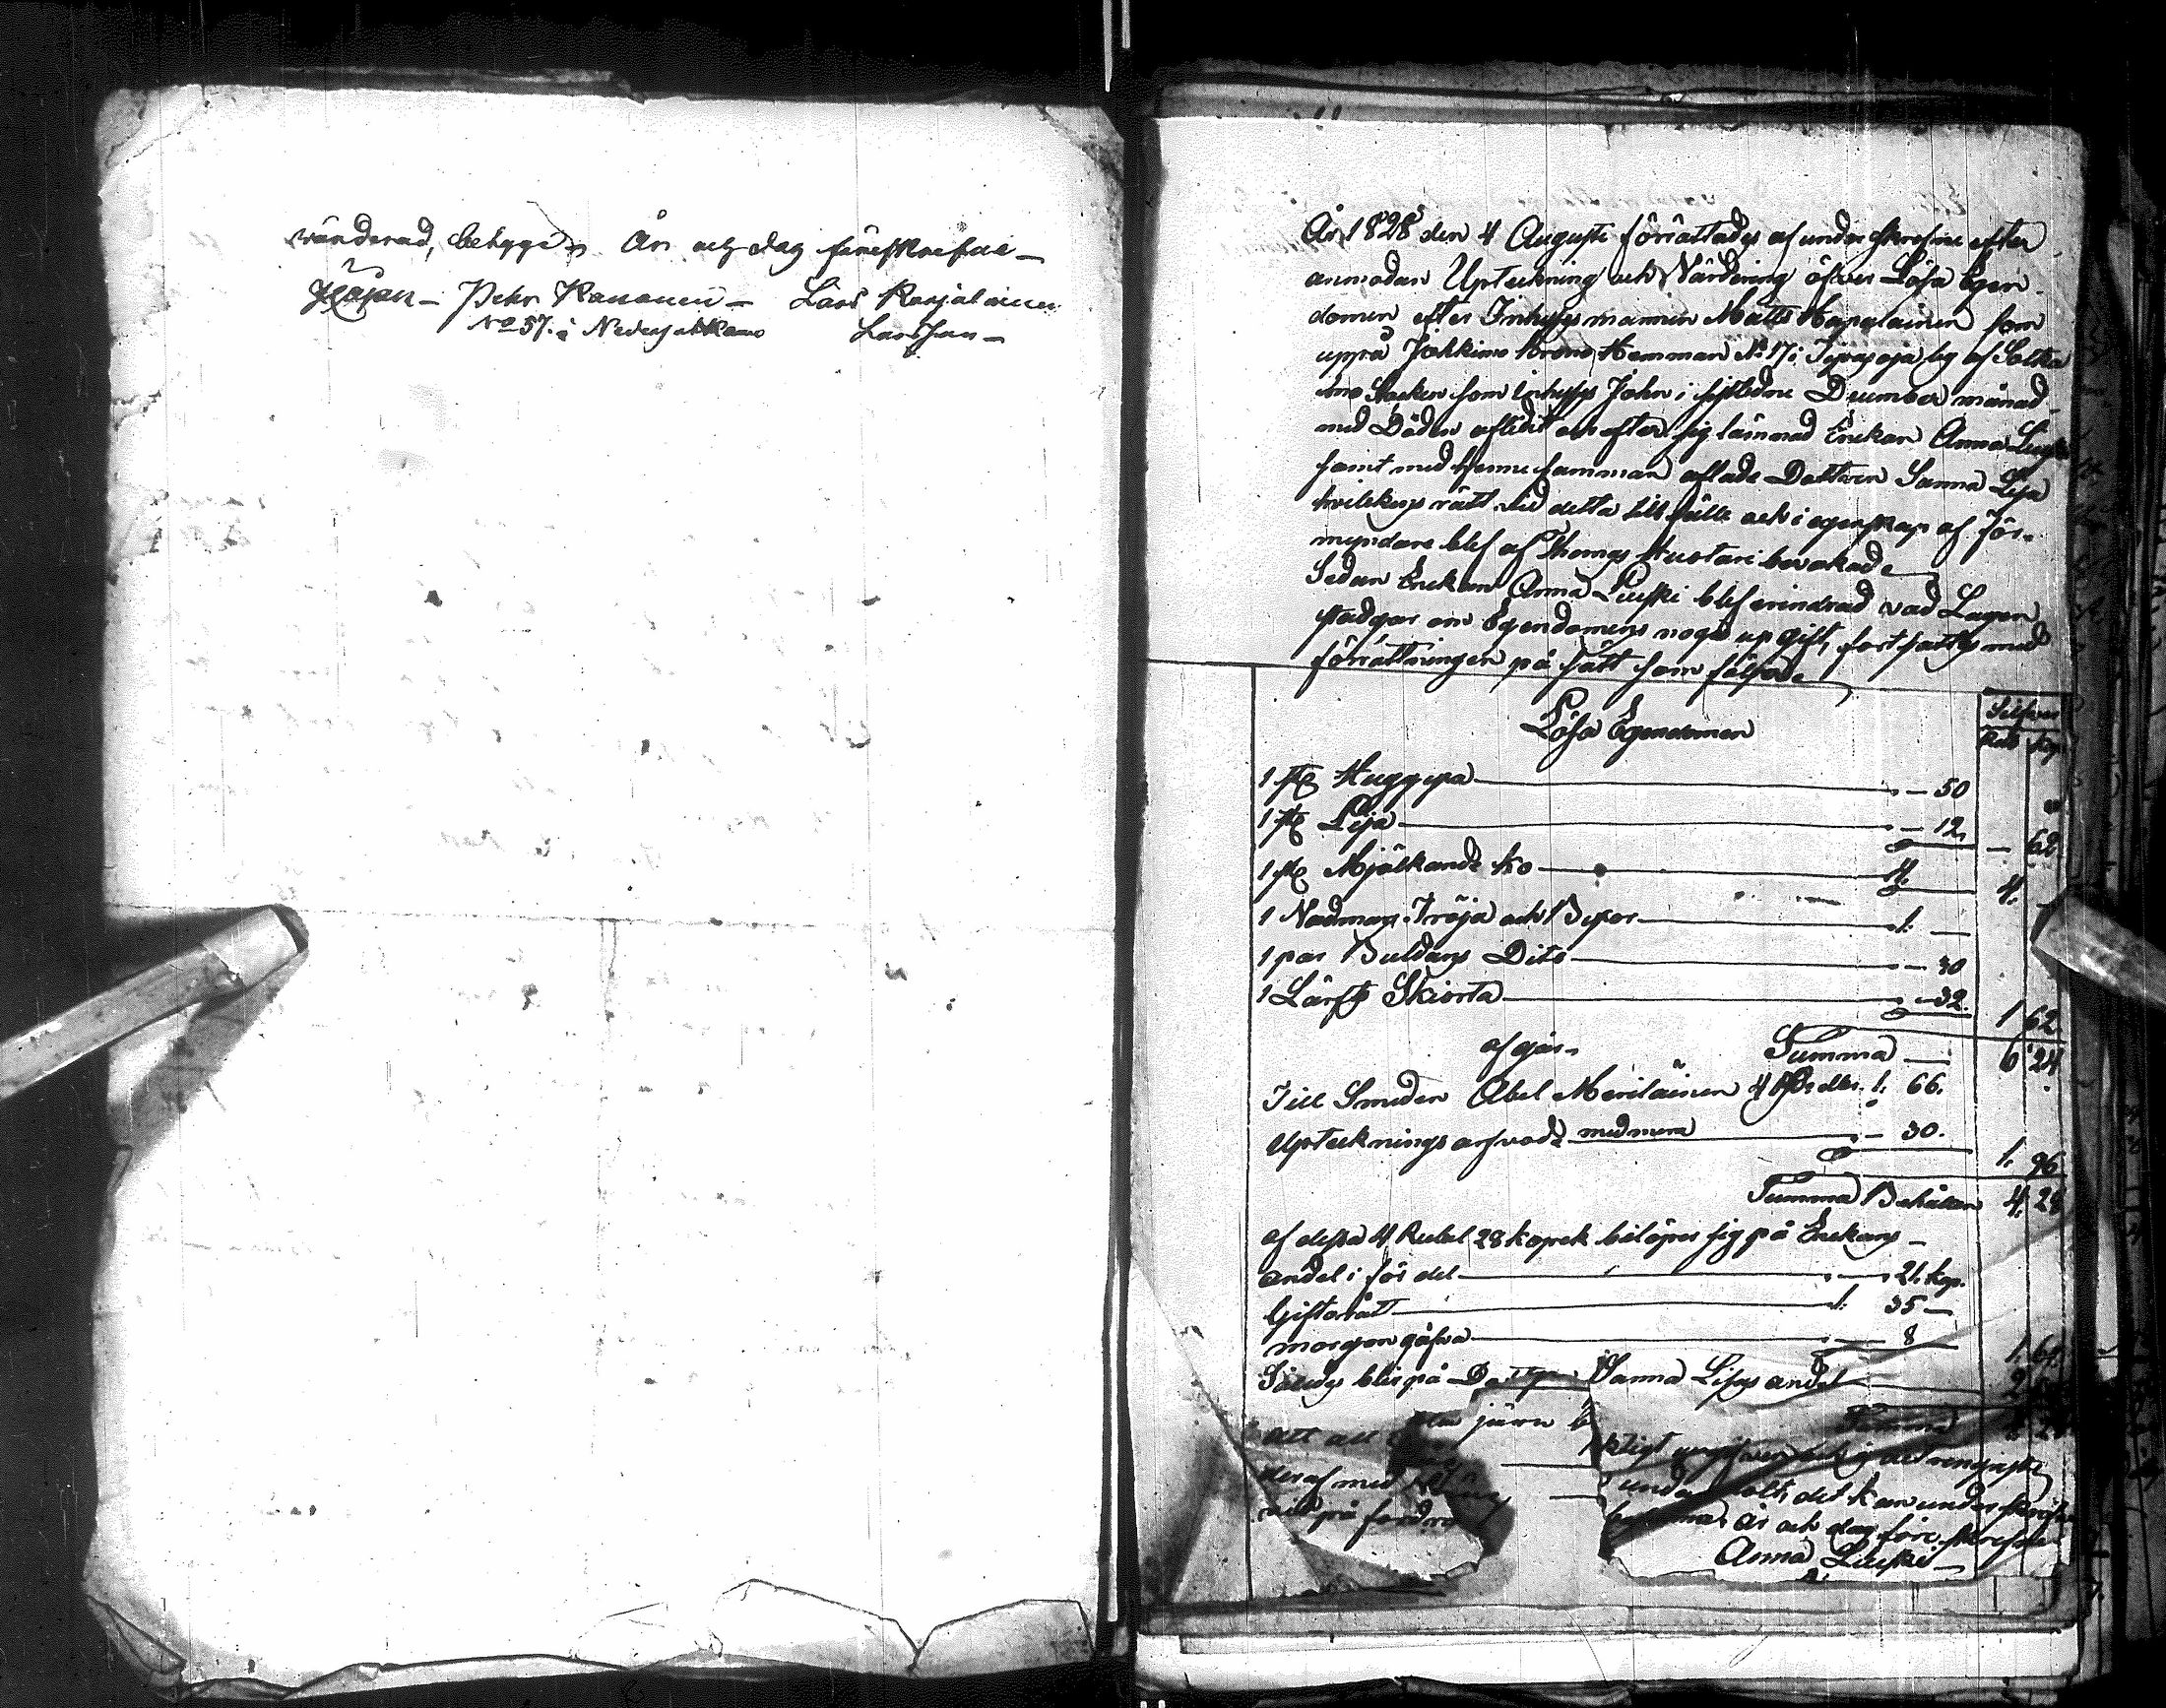 wärderad, betygge År och dag förutskrefne —
Pehr Kananen — Lars Karjalainen
No 57. i Nederjakkamo Larsson —
År 1828 den 4 Augusti förrättades af underskrefne efter
anmodan Upteckning och Värdering öfver Lösa Egen
domen efter Inhyses mannen Matts Kapalainen som
uppå Jokkimo Krono Hemman No 17 i Tipasoja by af Sotka
mo Socken som inhyses John i sistledne December månad
med Döden aflidit och efter sig lämnad Enekan Anna Leuski
samt med henne samman aflade Dottren Sanna Lisa
hvilkens rätt vid detta tillfälle och i egenskap af för-
myndare blef af Thomas Huotari bevakade
Sedan Enekan Anna Leuski blef erindrad vad Lagen
stadgar om Egendomens noga up gift, fortsattes med
förrättningen på sätt som följande
Lösa Egendomen
Silfver
Rub Kop
1 st Huggyxa — 50
1 st Lija — 12. — 62
1 st Mjölkande Ko 4. 4.
1 Vadmans Tröja och Byxor 1. —
1 par Buldans Dito — 30
1 Lärfts Skiorta — 32. 1 62
afgår — Summa — 6 24
Till Smeden Abel Meriläinen 4 Rdr 1. 66.
Uptecknings arfvode med mera — 30. 1. 96
Summa Behållen 4. 28
af dessa 4 Rubel 28 kopek belöper sig på Enekans —
andel i för del — 21. kop.
Giftorätt 1. 35 —
morgongåfva — 8 1. 64.
Således blir på Sanna Lisas andel 2
Summa
att all
deraf med
vid på fordra det kan underskrifven
år och dag före skrefne
Anna Leuski —